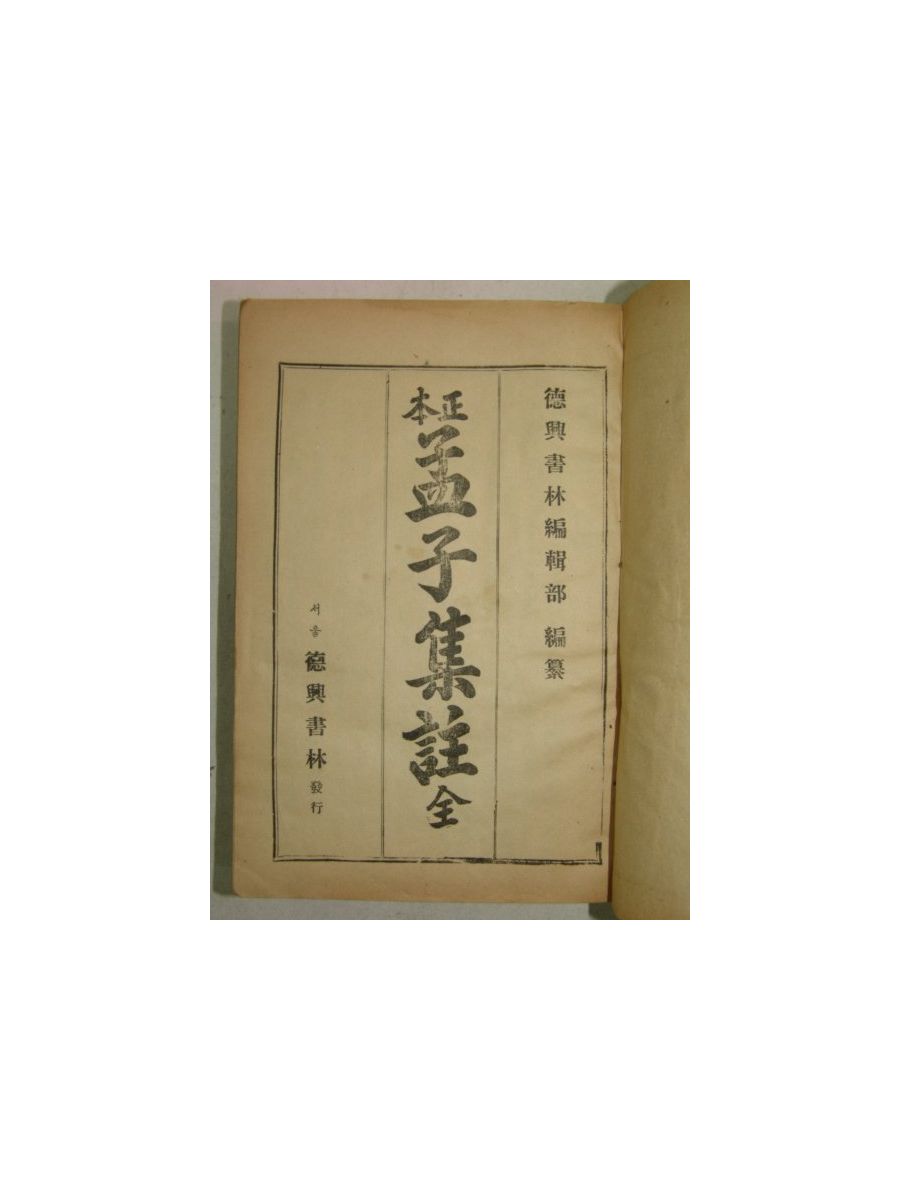 德興書林編輯部 編纂
正本 孟子集註 全
서울 德興書林 發行